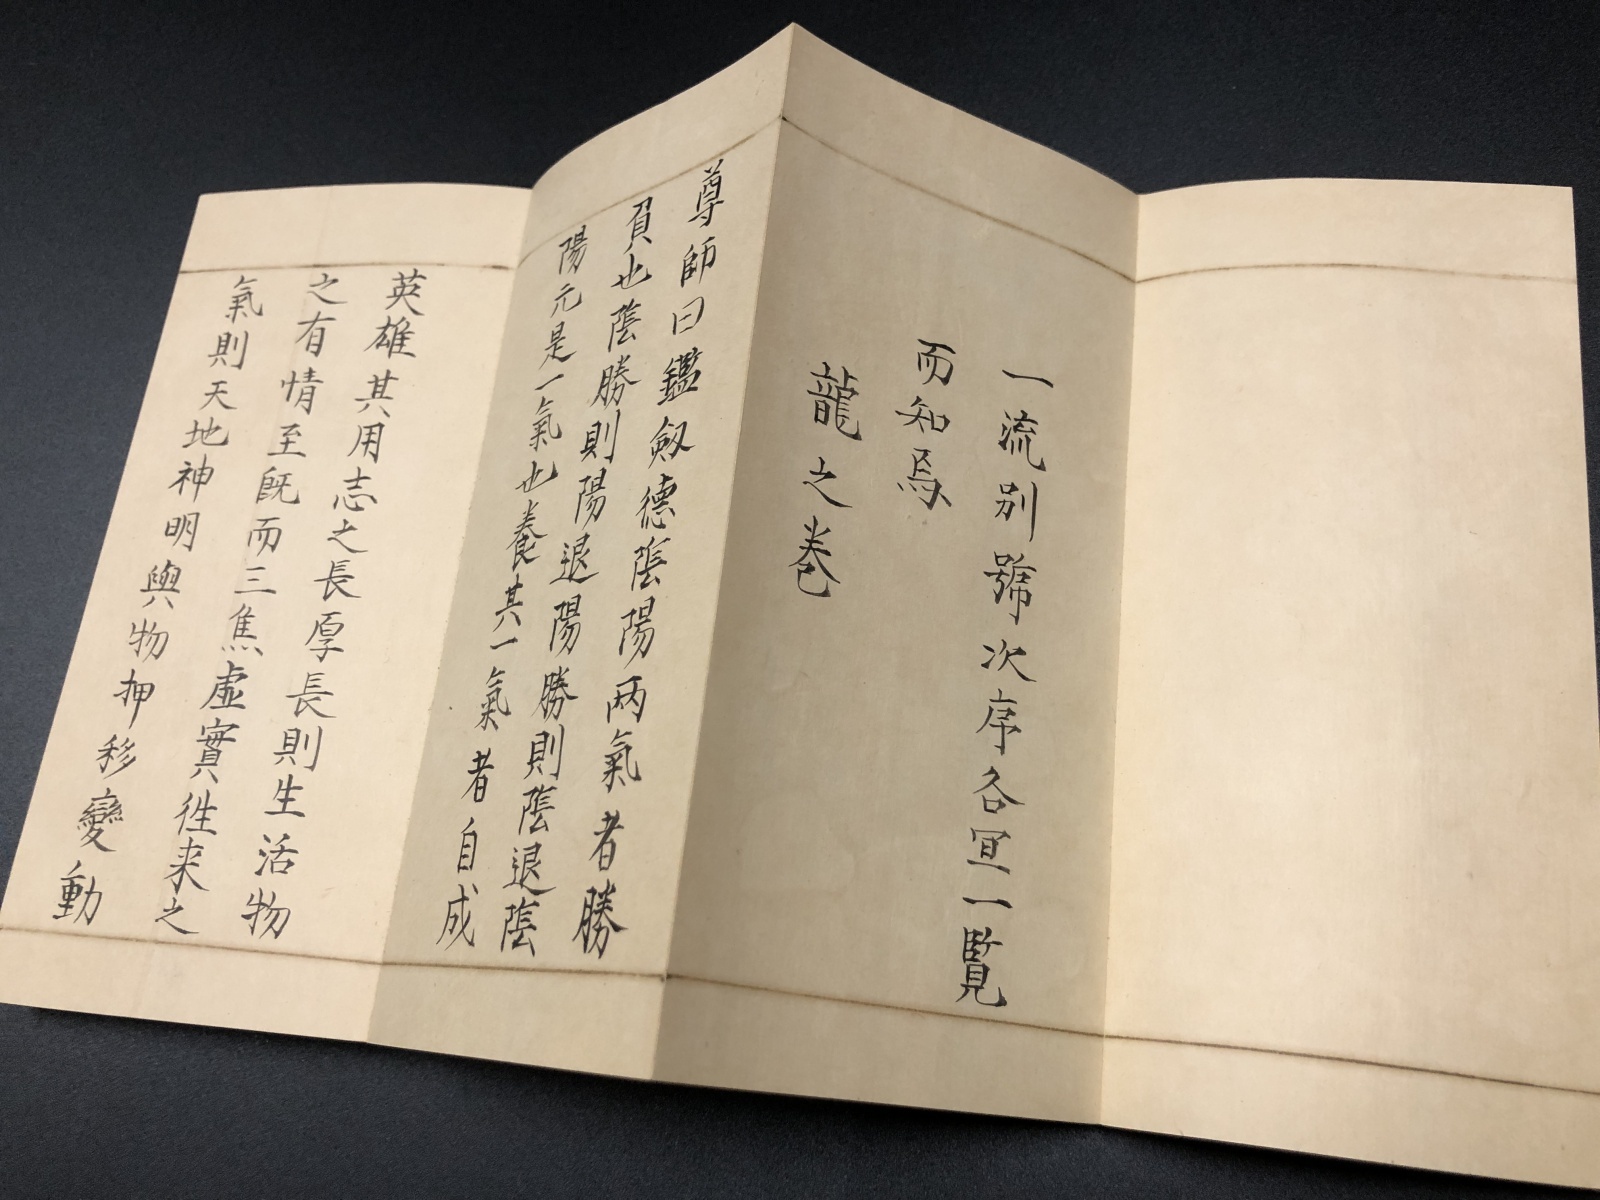 一流別號次序各冝一覧
而知焉
龍之巻
尊師曰鑑劔德隂陽两氣者勝
負也隂勝則陽退陽勝則隂退隂
陽元是一氣也養其一氣者自成
英雄其用志之長厚長則生活物
之有情至既而三焦虛實徃来之
氣則天地神明與物押移變動